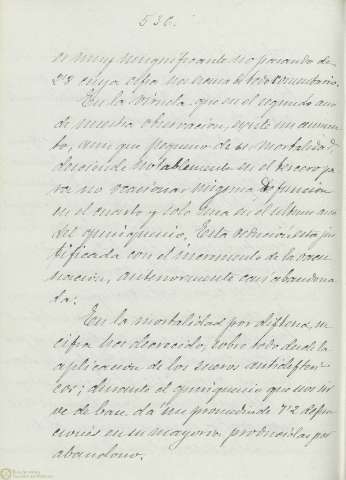 536.
es muy insignificante no pasando de
28 cuya cifra nos exime de todo comentario.
En la viruela que en el segundo año
de nuestra observacion, existe un aumen-
to, aunque pequeño de su mortalidad,
desciende notablemente en el tercero pa
ra no ocasionar ninguna defuncion
en el cuarto y solo una en el ultimo año
del quinquenio. Esta esta jus
tificada con el incremento de la vacu
nación, anteriormente casi abandona
da.
En la mortalidad por difteria, su
cifra ha decrecido, sobre todo desde la
aplicacion de los sueros antidifteri
cos; durante el quinquenio que nos sir
ve de base, da un promedio de 7'2 defun
ciones en su mayoria producidas por
abandono.